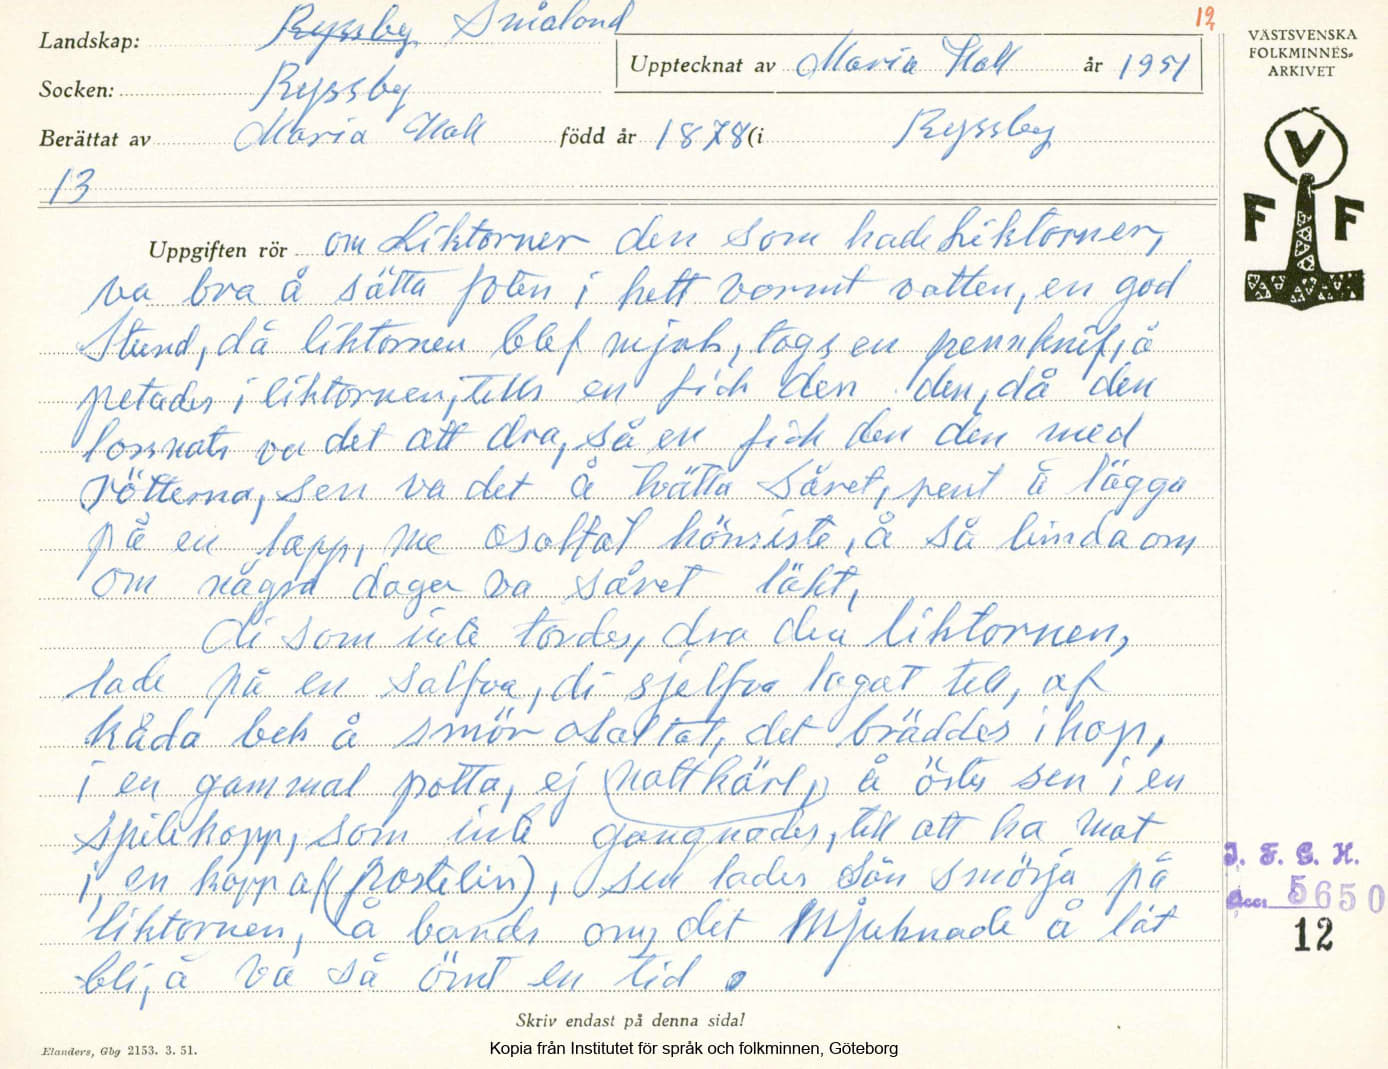 12
Landskap: Ryssby Småland
Upptecknat av Maria Hall år 1951
Socken: Ryssby
Berättat av Maria Hall född år 1878 (i Ryssby
13
VÄSTSVENSKA
FOLKMINNES-
ARKIVET
V
F F
Uppgiften rör om Liktorner den som hade Liktorner,
va bra å sätta foten i hett varmt vatten, en god
Stund, då liktornen blef mjuk, togs en pennknif, å
petades i liktornen, tells en fick den den, då den
lossnats va det att dra, så en fick den den med
rötterna, sen va det å tvätta såret, rent å lägga
på en lapp, me osaltat hönsister, å så linda om
om några dager va såret läkt,
di som inte tordes, dra den liktornen,
lade på en salfva, di sjelfva lagat tell, af
kåda bek å smör osaltat, det bräddes ihop,
i en gammal potta, ej (nattkärl,) å östes sen i en
spilekopp, som inte gangnades, till att ha mat
i, en kopp af (Postelin), sen lades sån smörja på
liktornen, å bands om, det Mjuknade å lät
bli, å va så ömt en tid.
I. F. G. H.
Acc. 5650
12
Skriv endast på denna sida!
Elanders, Gbg 2153. 3. 51.
Kopia från Institutet för språk och folkminnen, Göteborg